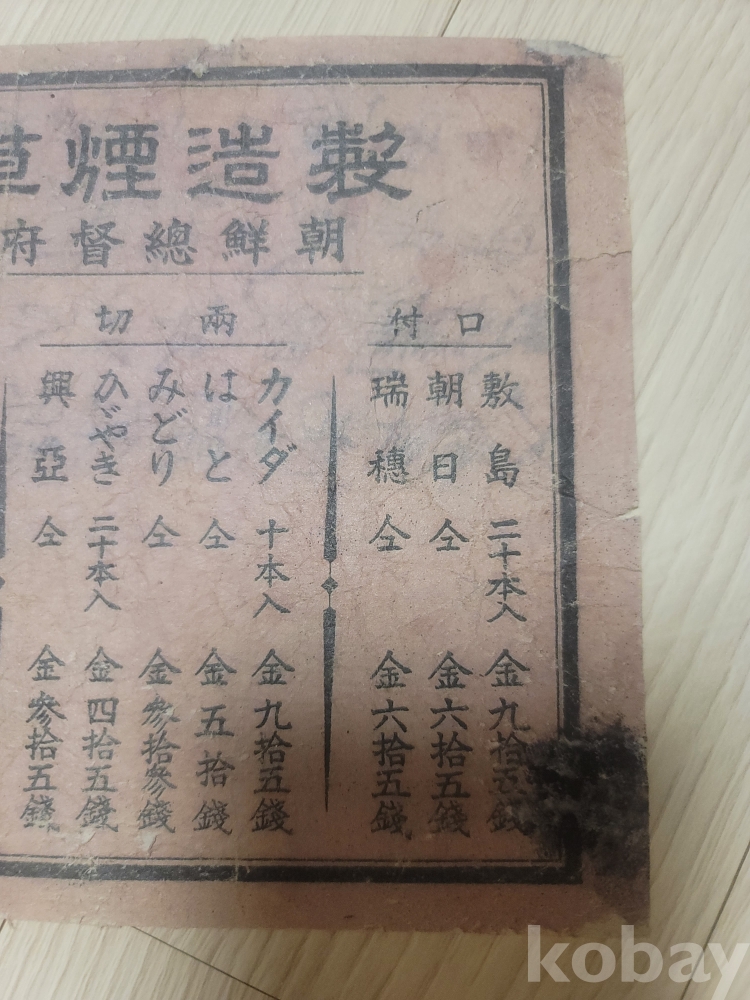 製造煙草
朝鮮總督府
口付
敷島 二十本入 金九拾五錢
朝日 仝 金六拾五錢
瑞穗 仝 金六拾五錢
兩切
カイダ 十本入 金九拾五錢
はと 仝 金五拾錢
みどり 仝 金參拾參錢
かゞやき 二十本入 金四拾五錢
興亞 仝 金參拾五錢
kobay